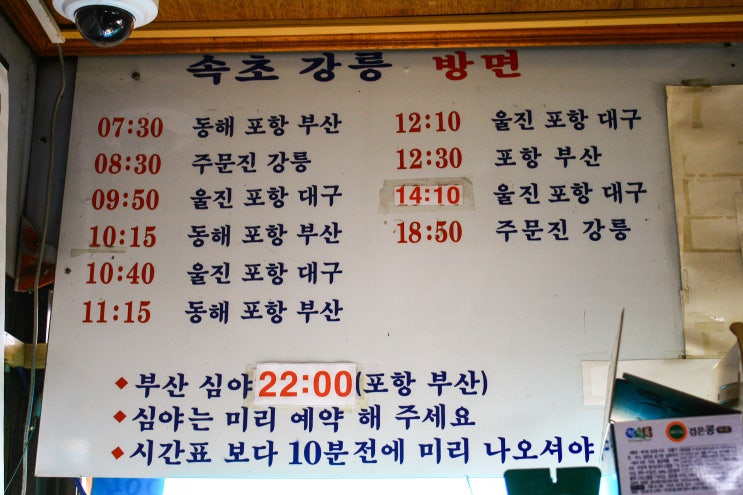 속초 강릉 방면
07:30 동해 포항 부산
08:30 주문진 강릉
09:50 울진 포항 대구
10:15 동해 포항 부산
10:40 울진 포항 대구
11:15 동해 포항 부산
12:10 울진 포항 대구
12:30 포항 부산
14:10 울진 포항 대구
18:50 주문진 강릉
◆부산 심야 22:00(포항 부산)
◆심야는 미리 예약 해 주세요
◆시간표 보다 10분전에 미리 나오셔야
검은콩